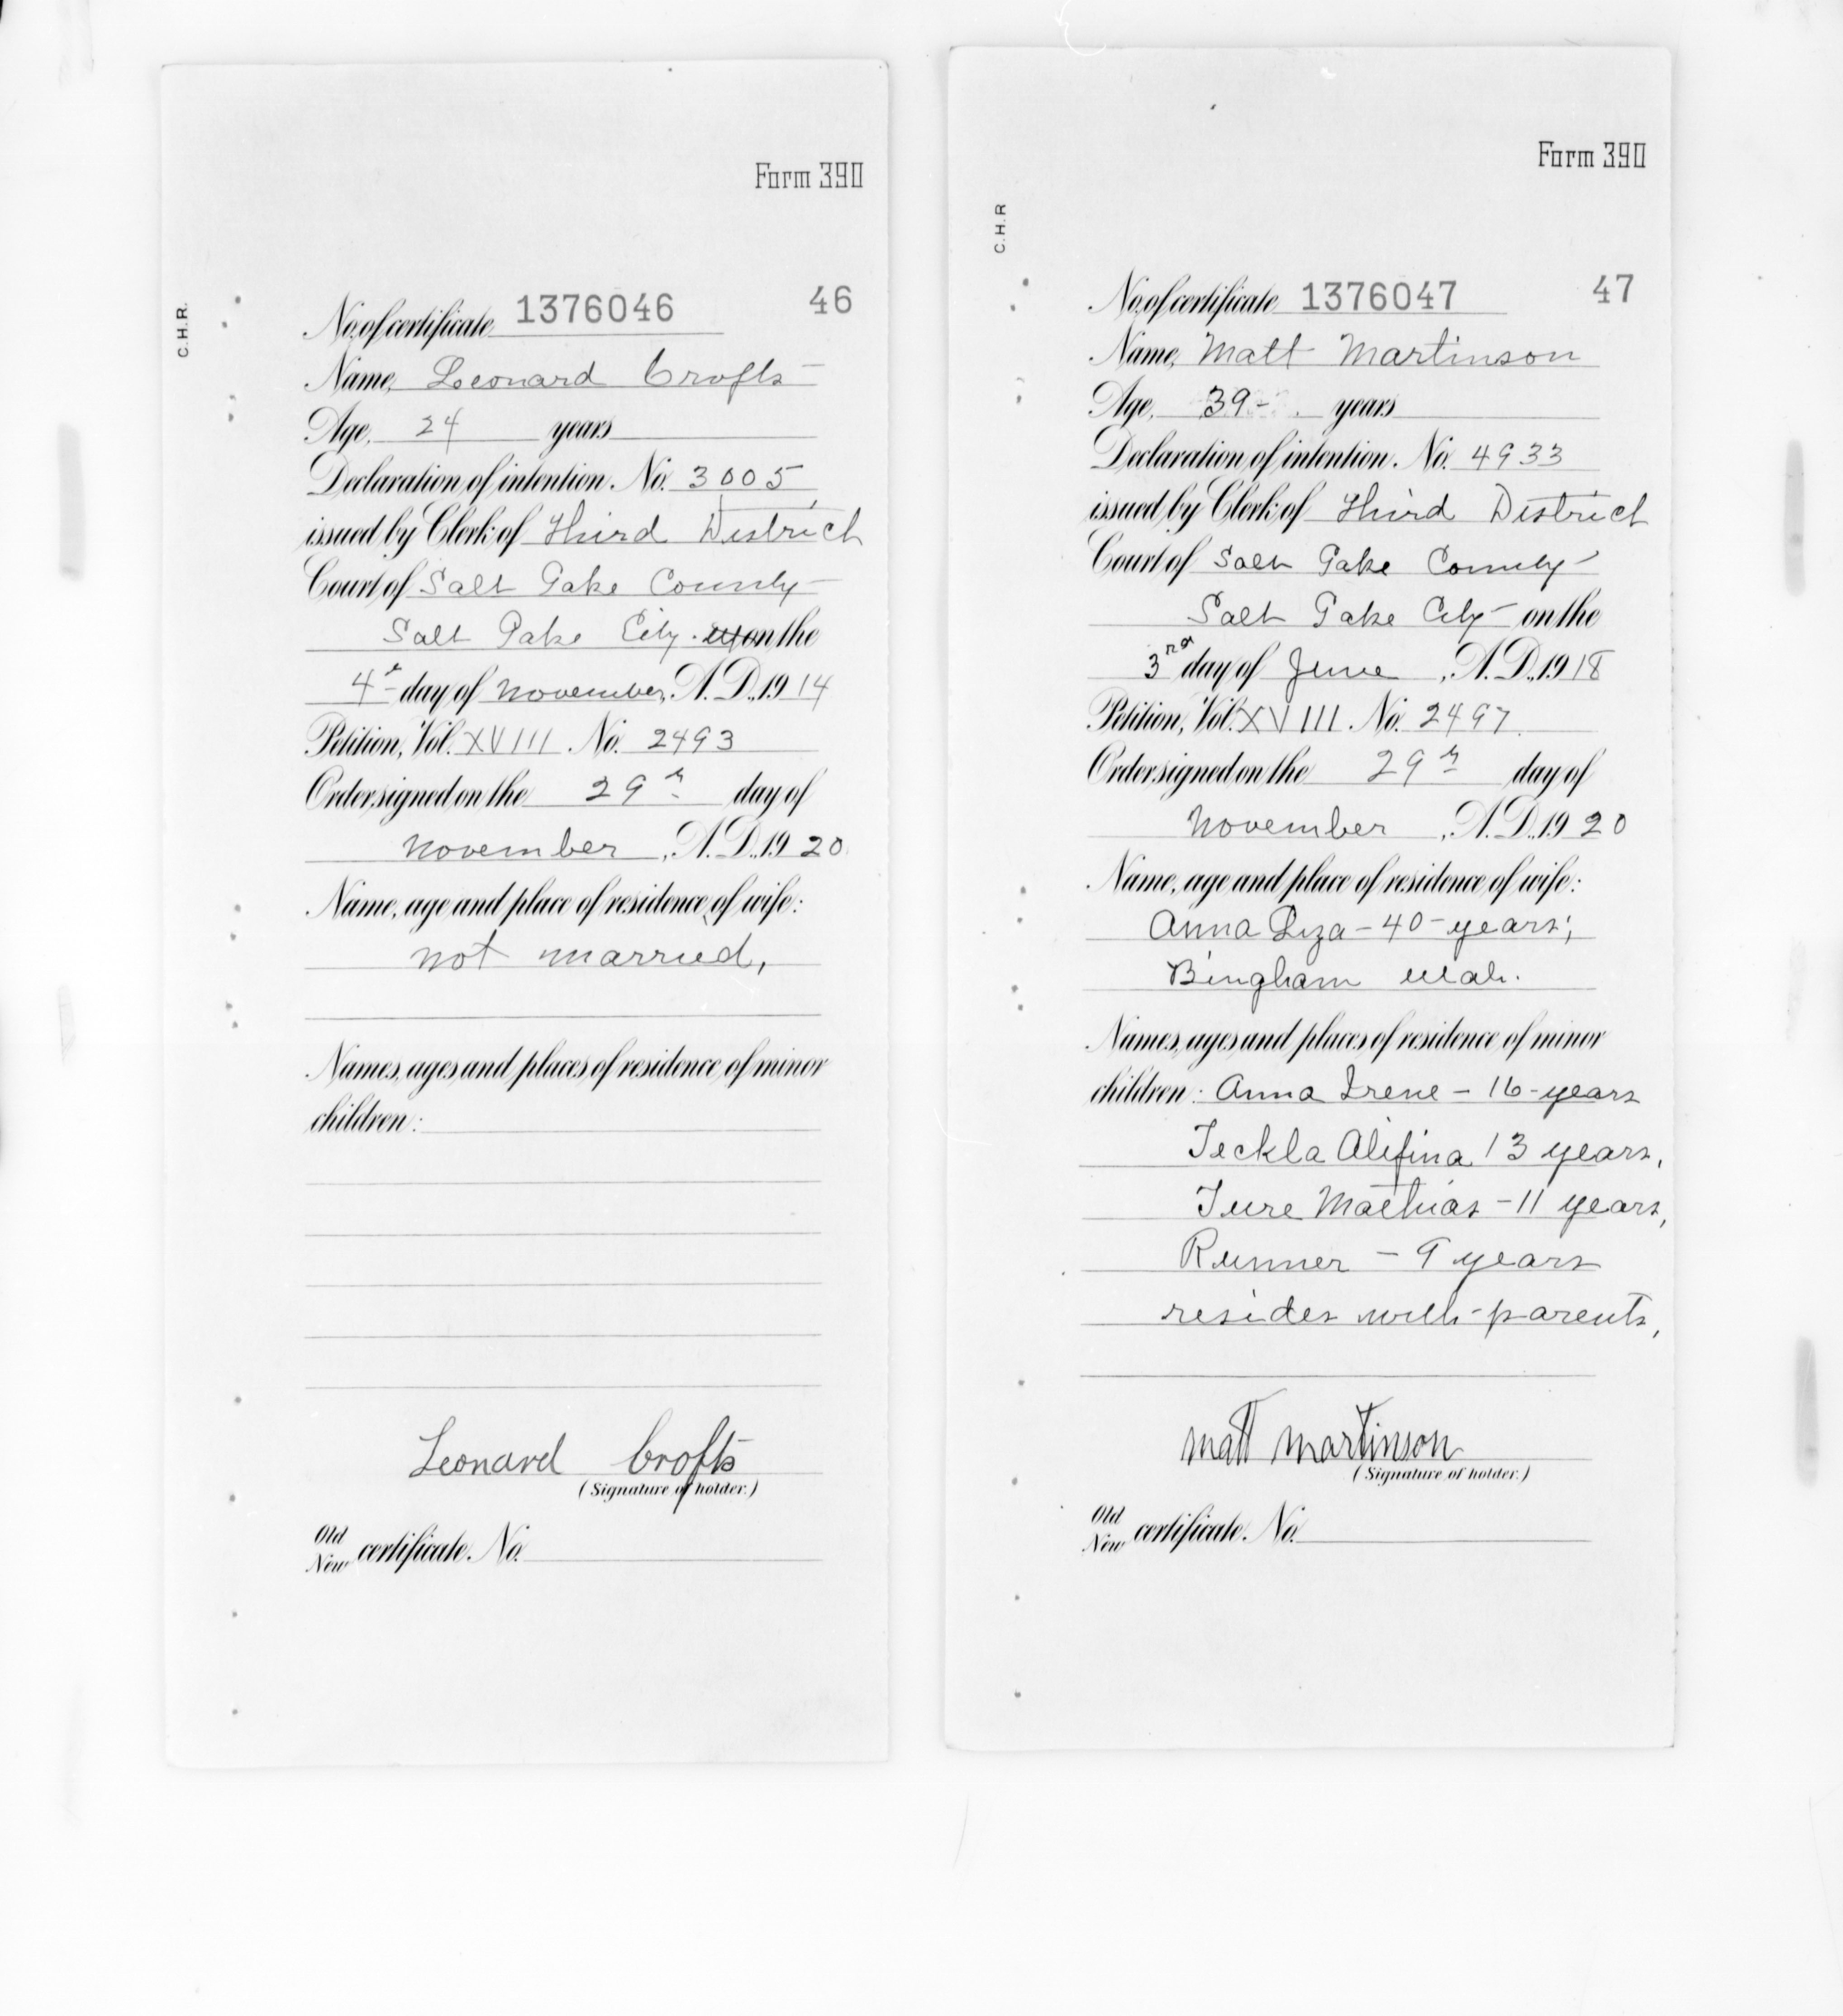 Form 390
C.H.R.
46
No. of certificate 1376046
Name, Leonard Crofts
Age, 24 years
Declaration of intention, No. 3005
issued by Clerk of Third District
Court of Salt Lake County
Salt Lake City on the
4th day of November, A.D., 1914
Petition, Vol. XVIII No. 2493
Order signed on the 29th day of
November, A.D., 1920
Name, age and place of residence of wife:
not married,
Names, ages and places of residence of minor
children:
Leonard Crofts
(Signature of holder.)
Old
New certificate, No.
Form 390
C.H.R
47
No. of certificate 1376047
Name, Matt Martinson
Age, 39- years
Declaration of intention, No. 4933
issued by Clerk of Third District
Court of Salt Lake County
Salt Lake City on the
3rd day of June, A.D., 1918
Petition, Vol. XVIII No. 2497
Order signed on the 29th day of
November, A.D., 1920
Name, age and place of residence of wife:
Anna Liza - 40 - years;
Bingham Utah.
Names, ages and places of residence of minor
children: Anna Irene - 16 - years
Teckla Alifina 13 years,
Ture Mathias - 11 years,
Runner - 9 years
resides with parents,
Matt Martinson
(Signature of holder.)
Old
New certificate, No.